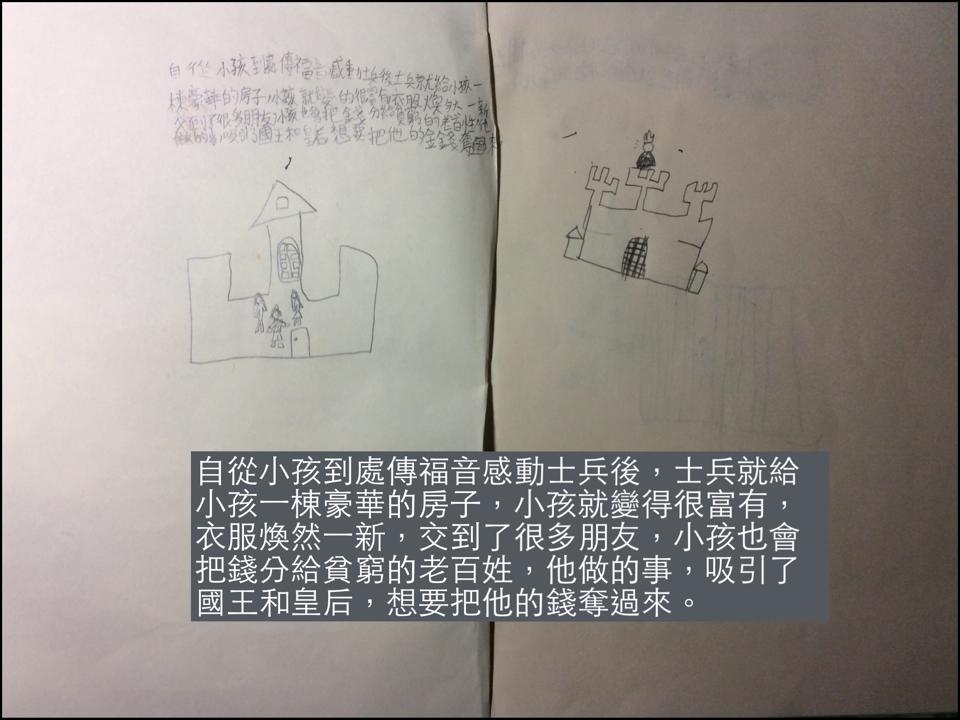 自從小孩到處傳福音感動士兵後士兵就給小孩一
棟豪華的房子小孩就變的很富有衣服煥然一新
交到了很多朋友小孩也會把金錢分給貧窮的老百姓他
做的事吸引了國王和皇后想要把他的金錢奪過來
自從小孩到處傳福音感動士兵後，士兵就給
小孩一棟豪華的房子，小孩就變得很富有，
衣服煥然一新，交到了很多朋友，小孩也會
把錢分給貧窮的老百姓，他做的事，吸引了
國王和皇后，想要把他的錢奪過來。